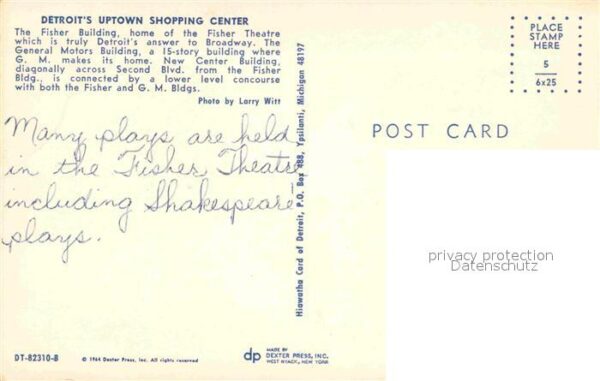 DETROIT'S UPTOWN SHOPPING CENTER
The Fisher Building, home of the Fisher Theatre
which is truly Detroit's answer to Broadway. The
General Motors Building, a 15-story building where
G. M. makes its home. New Center Building,
diagonally across Second Blvd. from the Fisher
Bldg., is connected by a lower level concourse
with both the Fisher and G. M. Bldgs.
Photo by Larry Witt
Many plays are held
in the Fisher Theatre
including Shakespeare
plays.
DT-82310-B
© 1964 Dexter Press, Inc. All rights reserved
dp
MADE BY
DEXTER PRESS, INC.
WEST NYACK, NEW YORK
Hiawatha Card of Detroit, P.O. Box 488, Ypsilanti, Michigan 48197
PLACE
STAMP
HERE
5
6x25
POST CARD
privacy protection
Datenschutz